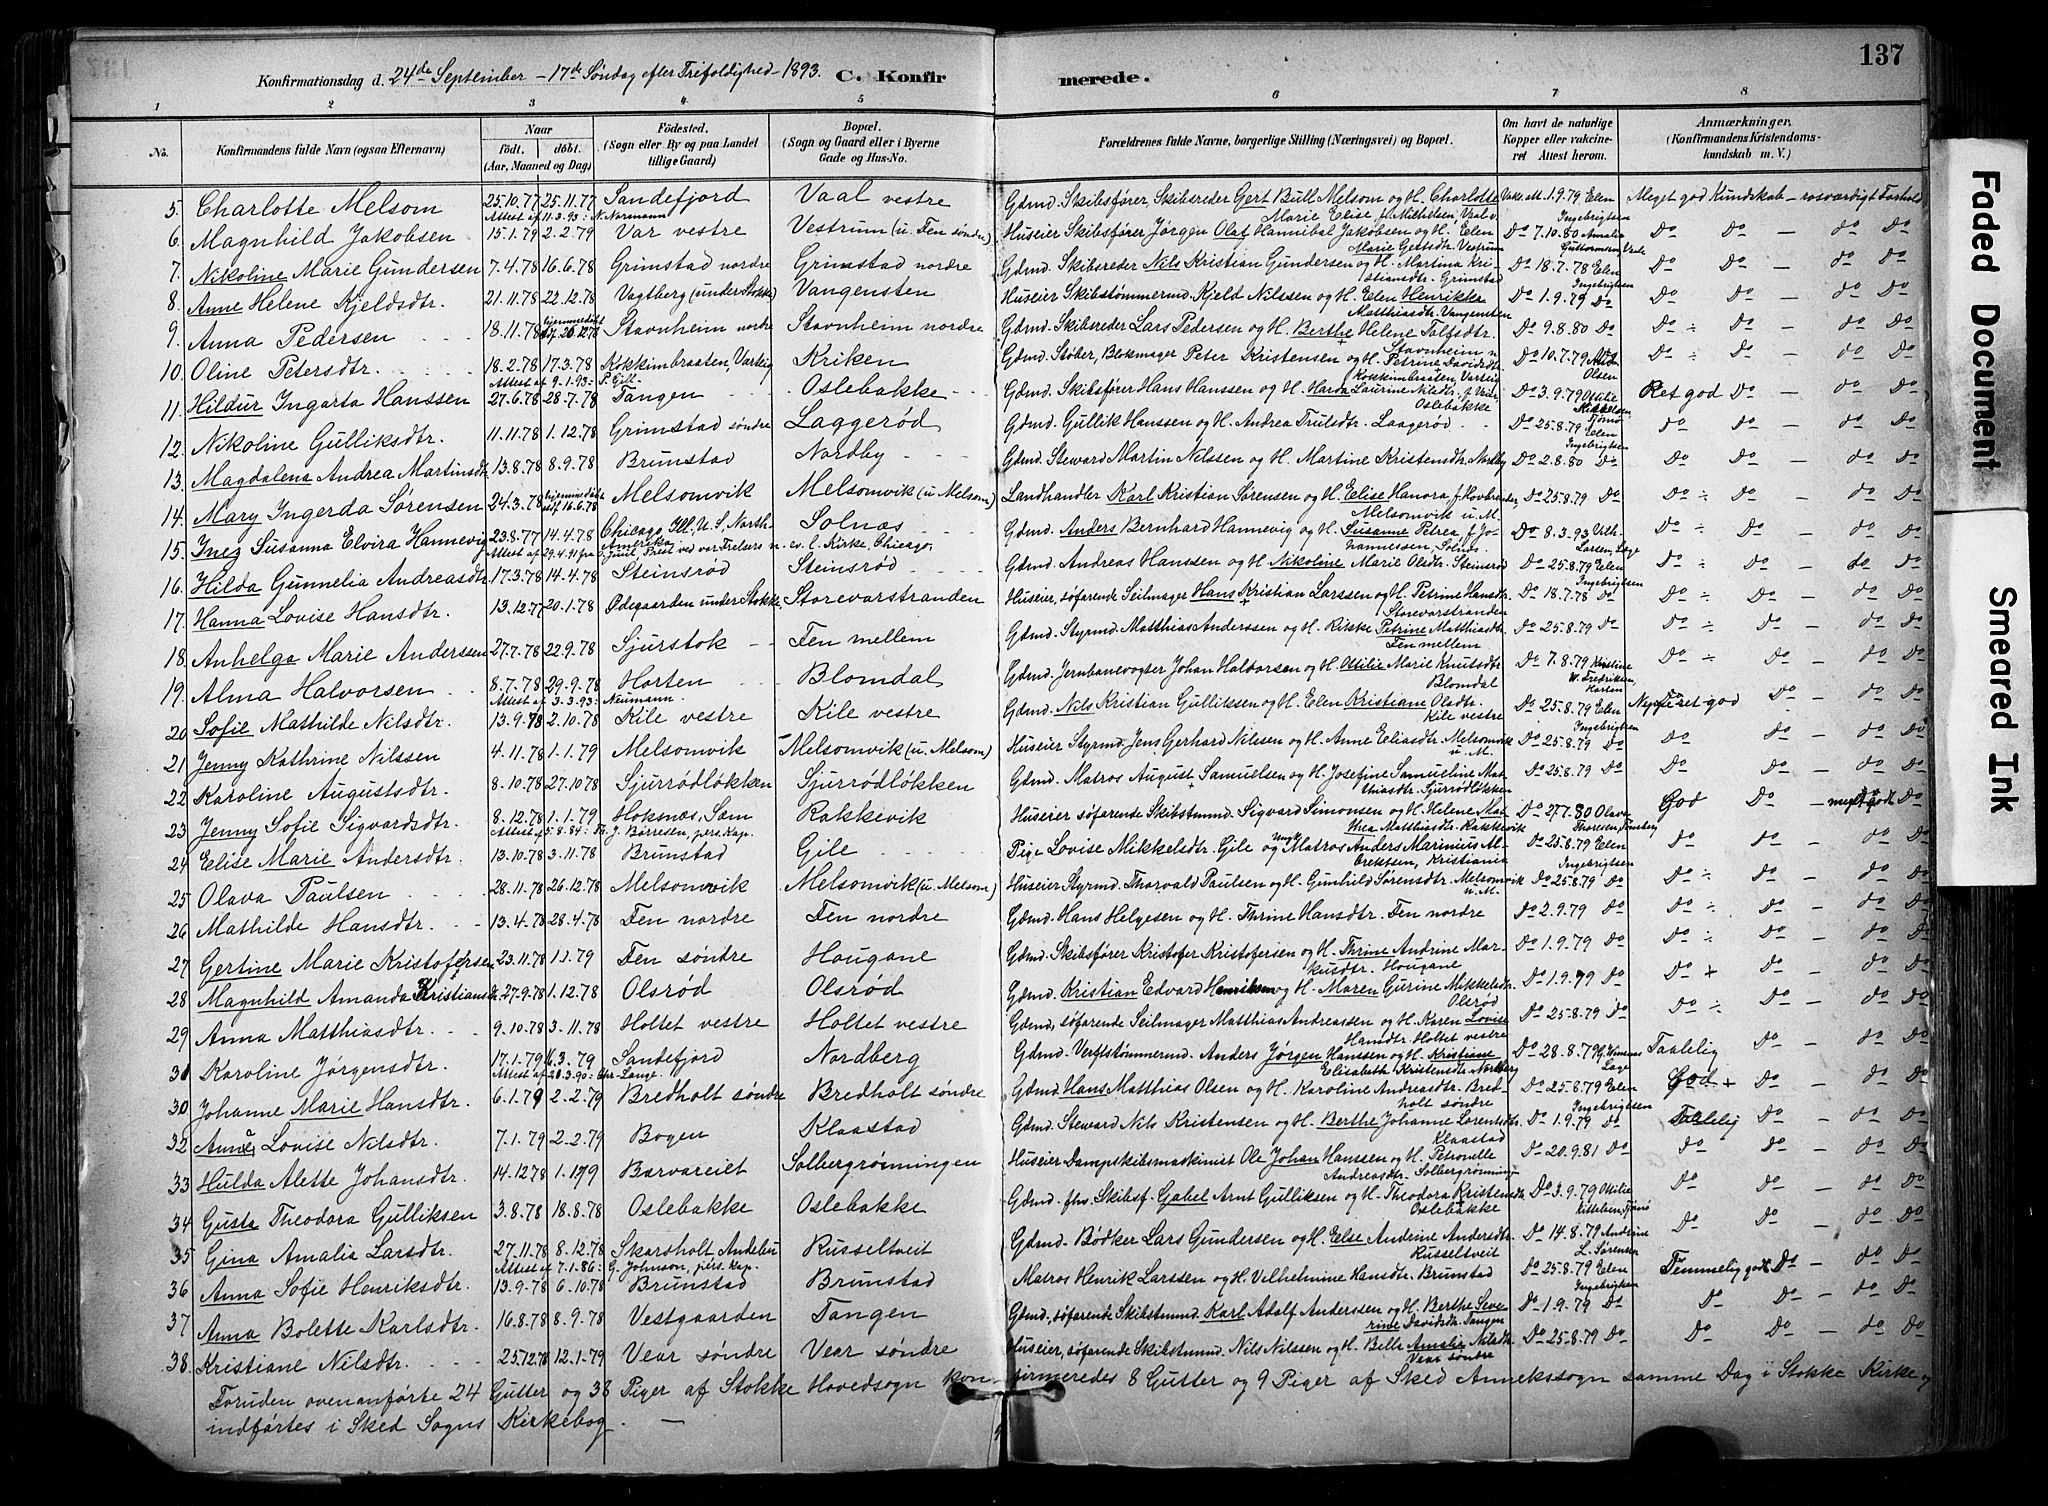 137
Konfirmationsdag d. 24de September - 17de Søndag efter Trefoldighed - 1893. C. Konfirmerede.
1 2 3 4 5 6 7 8
No. Konfirmandens fulde Navn (ogsaa Efternavn) Naar født. døbt. (Aar, Maaned og Dag) Fødested. (Sogn eller By og paa Landet tillige Gaard) Bopæl. (Sogn og Gaard eller i Byerne Gade og Hus-No. Forældrenes fulde Navne, borgerlige Stilling (Næringsvei) og Bopæl. Om havt de naturlige Kopper eller vakcineret Attest herom. Anmærkninger. (Konfirmandens Kristendomskundskab m. V.)
5. Charlotte Melsom 25.10.77 25.11.77 Sandefjord Vaal vestre Gdmd. Skibsfører, Skibsreder Gert Bull Melsom og H. Charlotte Marie Elise, f. Mathilsen, Vaal v. Vak. att. 1.9.79 Elen Ingebrigtsen Meget god Kundskab - rosværdigt Forhold
Attest af 11.3.93: N. Normann
6. Magnhild Jakobsen 15.1.79 2.2.79 Var vestre Vestrum (u. Fen søndre) Huseier Skibsfører Jørgen Olaf Hannibal Jakobsen og H. Elen Marie Gettsdtr. Vestrum Do 7.10.80 Amalia Guttormsen Do Do - do Do
7. Nikoline Marie Gundersen 7.4.78 16.6.78 Grimstad nordre Grimstad nordre Gdmd. Skibsreder Nils Kristian Gundersen og H. Martina Kristiansdtr. Grimstad Do 18.7.78 Elen Ingebrigtsen Do Do - do Do
8. Anne Helene Kjeldsdtr. 21.11.78 22.12.78 Vagtberg (under Stokke) Vangensten Huseier Skibstømmermd. Kjeld Nilssen og H. Elen Henrikke Matthiasdtr. Vangensten Do 1.9.79 Do Do Do - do Do
9. Anna Pedersen 18.11.78 hjemmedøbt 26.12.78 Stavnheim nordre Stavnheim nordre Gdmd. Skibsreder Lars Pedersen og H. Berthe Helene Tolfsdtr. Stavnheim n. Do 9.8.80 Do Do ÷ Do - do Do
10. Oline Petersdtr. 18.2.78 17.3.78 Kokkimbraaten, Varteig Kriken Gdmd. Støber, Blokmager Peter Kristensen og H. Petrine Davidsdtr. Kokkimbraaten, Varteig Do 10.7.79 Olsen Do ÷ Do - do Do
Attest af 9.1.93: P. Gill
11. Hildur Ingarta Hanssen 27.6.78 28.7.78 Tangen Oslebakke Gdmd. Skibsfører Hans Hanssen og H. Maren Laurine Nilsdtr. Oslebakke Do 3.9.79 Otilie Ret god Do - do Do
12. Nikoline Gulliksdtr. 11.11.78 1.12.78 Grimstad søndre Laggerød Gdmd. Gullik Hanssen og H. Andrea Trulsdtr. Laagerød Do 25.8.79 Elen Ingebrigtsen do Do - do Do
13. Magdalena Andrea Martinsdtr. 13.8.78 8.9.78 Brunstad Nordby Gdmd. Steward Martin Nilssen og H. Martine Kristensdtr. Nordby Do 2.8.80 Do Do Do - do Do
14. Mary Ingerda Sørensen 24.3.78 hjemmedøbt 16.6.78 Melsomvik Melsomvik (u. Melsom) Landhandler Karl Kristian Sørensen og H. Elise Hanora f. Hovbrender, Melsomvik u. M. Do 25.8.79 Do Do ÷ Do - do Do
15. Inez Susanna Elvira Hannevig 23.8.77 14.4.78 Chicago Ill. U.S. North Amerika Solnæs Gdmd. Anders Bernhard Hannevig og H. Susanne Petrea f. Johannessen, Solnæs. Do 8.3.93 Larsen, Læge Do ÷ Do - do Do
Attest af 29.4.91 fra J. Juul, Præst ved vor Frelsers n. ev. l. Kirke, Chicago.
16. Hilda Gunnelia Andreasdtr. 17.3.78 14.4.78 Steinsrød Steinsrød Gdmd. Andreas Hanssen og H. Nikoline Marie Olsdtr. Steinsrød Do 25.8.79 Elen Ingebrigtsen Do ÷ Do - do Do
17. Hanna Lovise Hansdtr. 13.12.77 20.1.78 Ødegaarden under Stokke Storevarstranden Huseier, søfarende Seilmager Hans Kristian Larssen og H. Petrine Hansdtr. Storevarstranden Do 18.7.78 Do Do ÷ Do - do Do
18. Anhelga Marie Anderssen 27.7.78 22.9.78 Sjurstok Fen mellem Gdmd. Styrmd. Matthias Anderssen og H. Rikke Petrine Matthiasdtr. Fen mellem Do 25.8.79 Do Do ÷ Do - do Do
19. Alma Halvorsen 8.7.78 29.9.78 Horten Blomdal Gdmd. Jernbanevogter Johan Halvorsen og H. Ottilie Marie Knutsdtr. Blomdal Do 7.8.79 Kristine W. Fredriksen, Horten Do ÷ Do - do Do
Attest af 3.3.93: Neumann.
20. Sofie Mathilde Nilsdtr. 13.9.78 2.10.78 Kile vestre Kile vestre Gdmd. Nils Kristian Gulliksen og H. Elen Kristiane Olsdtr. Kile vestre Do 25.8.79 Elen Ingebrigtsen Neppe ret god Do - do Do
21. Jenny Kathrine Nilssen 4.11.78 1.1.79 Melsomvik Melsomvik (u. Melsom) Huseier Styrmd. Jens Gerhard Nilssen og H. Anne Eliasdtr. Melsomvik u. M. Do 25.8.79 Do Do Do - do Do
22. Karoline Augustsdtr. 8.10.78 27.10.78 Sjurrødløkken Sjurrødløkken Gdmd. Matros August Samuelsen og H. Josefine Samueline Matthiasdtr. Sjurrødløkken Do 25.8.79 Do Do Do - do Do
23. Jenny Sofie Sigvardsdtr. 8.12.78 1.1.79 Hoksnæs, Sem Rakkevik Huseier søfarende Skibstmmd. Sigvard Simonsen og H. Helene Mathea Matthiasdtr. Rakkevik Do 27.7.80 Olava Thoresen, Tønsberg God Do - meget godt Do
Attest af 5.8.84: J. Børresen, pers. Kap.
24. Elise Marie Andersdtr. 13.10.78 3.11.78 Brunstad Gile Pige Lovise Mikkelsdtr. Gile og Ungk. Matros Anders Marinius Kristiania Do 25.8.79 Elen Ingebrigtsen Do Do - do Do
25. Olava Paulsen 28.11.78 26.12.78 Melsomvik Melsomvik (u. Melsom) Huseier Styrmd. Thorvald Paulsen og H. Gunhild Sørensdtr. Melsomvik u. M. Do 25.8.79 Do Do ÷ Do - do Do
26. Mathilde Hansdtr. 13.4.78 28.4.78 Fen nordre Fen nordre Gdmd. Hans Helgesen og H. Thrine Hansdtr. Fen nordre Do 2.9.79 Do Do ÷ Do - do Do
27. Gertine Marie Kristofersen 23.11.78 1.1.79 Fen søndre Hougane Gdmd. Skibsfører Kristofer Kristofersen og H. Thrine Andrine Markusdtr. Hougane Do 1.9.79 Do Do ÷ Do - do Do
28. Magnhild Amanda Kristiansdtr. 27.9.78 1.12.78 Olsrød Olsrød Gdmd. Kristian Edvard Henriksen og H. Maren Gurine Mikkelsdtr. Olsrød Do 1.9.79 Do Do + Do - do Do
29. Anna Matthiasdtr. 9.10.78 3.11.78 Holtet vestre Holtet vestre Gdmd., søfarende Seilmager Matthias Andreassen og H. Karen Lovise Hansdtr. Holtet vestre Do 25.8.79 Do Do ÷ Do - do Do
30 Karoline Jørgensdtr. 17.1.79 16.3.79 Sandefjord Nordberg Gdmd. Verftstømmermd. Anders Jørgen Hanssen og H. Kristiane Elisabeth Kristensdtr. Nordberg Do 28.8.79 Læge Taalelig Do - do Do
Attest af 20.3.90: Chr. Lange.
30 Johanne Marie Hansdtr. 6.1.79 2.2.79 Bredholt søndre Bredholt søndre Gdmd. Hans Matthias Olsen og H. Karoline Andreasdtr. Bredholt søndre Do 25.8.79 Elen Ingebrigtsen God + Do - do Do
32 Anna Lovise Nilsdtr. 7.1.79 2.2.79 Bogen Klaastad Gdmd. Steward Nils Kristensen og H. Berthe Johanne Lorentsdtr. Klaastad Do 1.9.79 Do Taalelig Do - do Do
33. Hulda Alette Johansdtr. 14.12.78 1.1.79 Barvareiet Solbergrønningen Huseier Dampskibsmaskinist Ole Johan Hanssen og H. Petronelle Andreasdtr. Solbergrønningen Do 20.9.81 Do Do Do - do Do
34. Gusta Theodora Gulliksen 3.8.78 18.8.78 Oslebakke Oslebakke Gdmd. fhv. Skibsf. Gabel Arnt Gulliksen og H. Theodora Kristensdtr. Oslebakke Do 3.9.79 Otilie Kittelsen, Tjømø Do Do - do Do
35. Gina Amalia Larsdtr. 27.11.78 8.12.78 Skarsholt Andebu Russeltveit Gdmd. Bødker Lars Gundersen og H. Else Andrine Andersdtr. Russeltveit Do 14.8.79 Andrine L. Sørensen Do Do - do Do
Attest af 7.1.86: G. Johnson, pers. Kap.
36 Anna Sofie Henriksdtr. 13.9.78 6.10.78 Brunstad Brunstad Matros Henrik Larssen og H. Vilhelmine Hansdtr. Brunstad Do 25.8.79 Elen Ingebrigtsen Temmelig godt Do - do Do
37 Anna Bolette Karlsdtr. 16.8.78 8.9.78 Vestgaarden Tangen Gdmd., søfarende Skibstmmd. Karl Adolf Anderssen og H. Berthe Severine Davidsdtr. Tangen Do 1.9.79 Do Do Do - do Do
38 Kristiane Nilsdtr. 25.12.78 12.1.79 Vear søndre Vear søndre Huseier, søfarende Skibstmmd. Nils Nilssen og H. Bille Amalie Nilsdtr. Vear søndre Do 25.8.79 Do Do Do - do Do
Foruden ovenanførte 24 Gutter og 38 Piger af Stokke Hovedsogn konfirmeredes 8 Gutter og 9 Piger af Sked Annekssogn samme Dag i Stokke Kirke og
indførtes i Sked Sogns Kirkebog. —
Faded Document
Smeared Ink